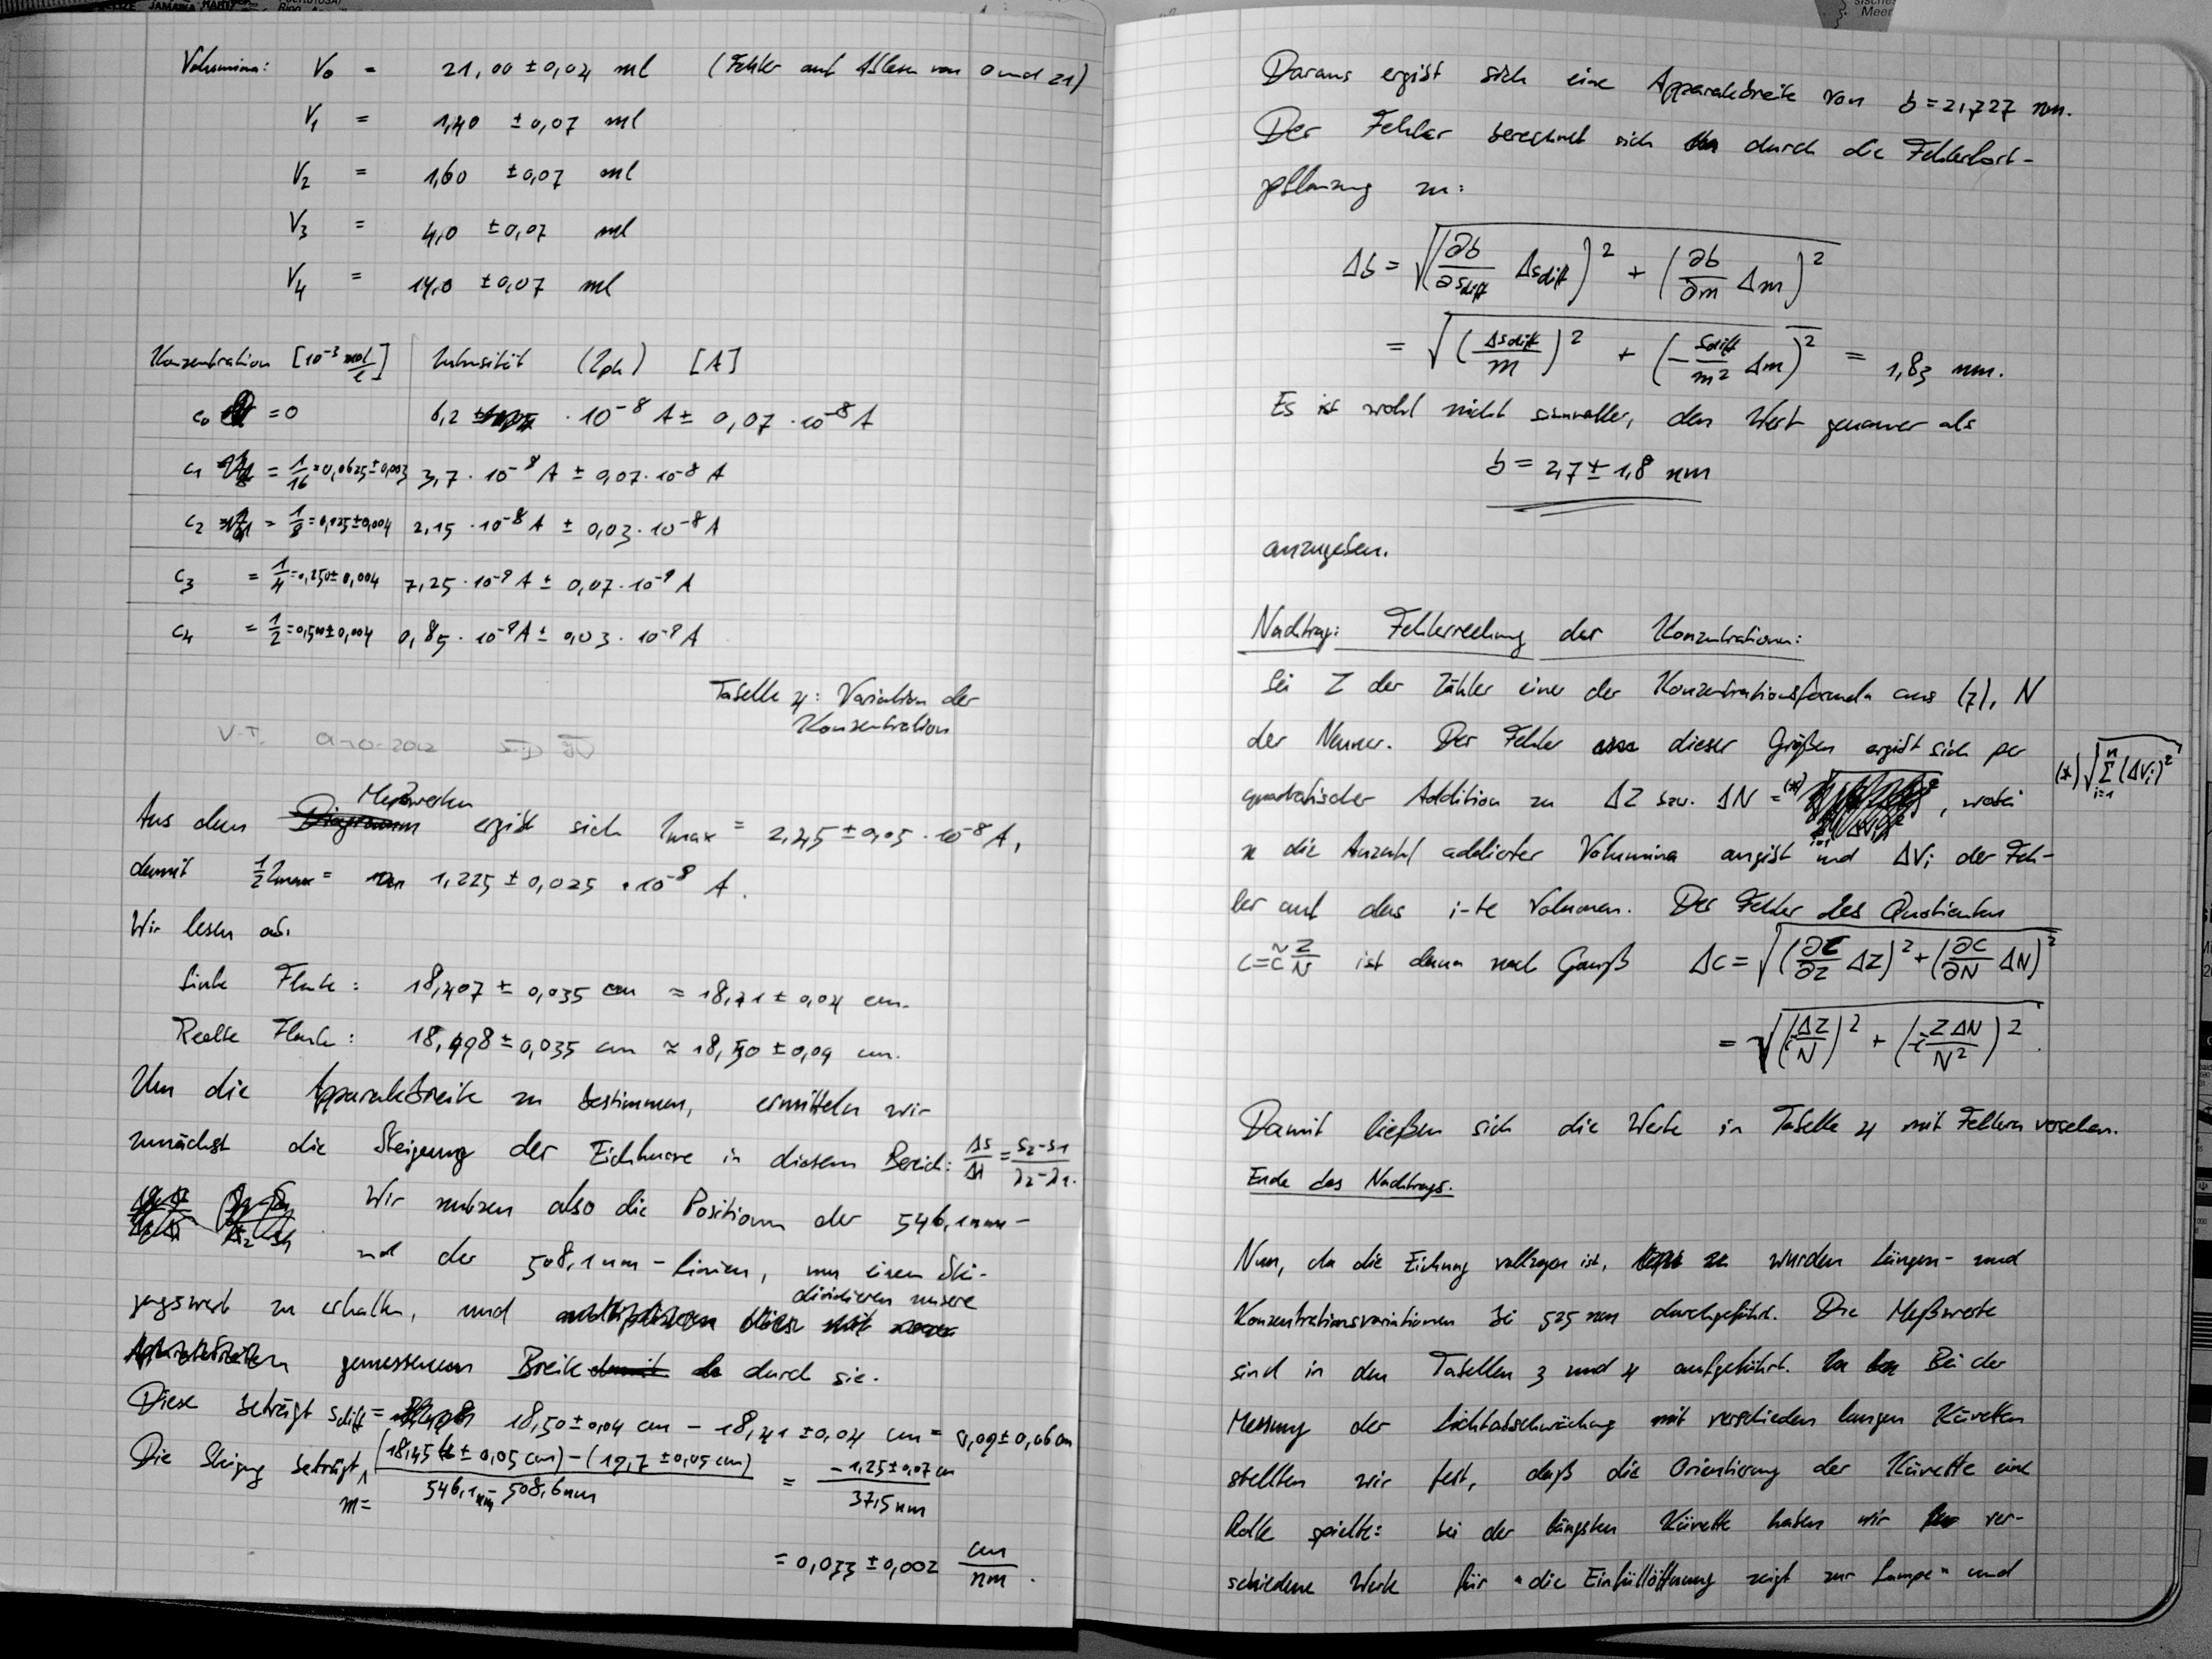 Volumina: V₀ = 21,00 ± 0,04 ml (Fehler auf Ablesen von 0 und 21)
V₁ = 1,40 ± 0,07 ml
V₂ = 1,60 ± 0,07 ml
V₃ = 4,0 ± 0,07 ml
V₄ = 14,0 ± 0,07 ml
Konzentration [10⁻³ mol/l] Intensität (Iph) [A]
c₀ = 0 6,2 · 10⁻⁸ A ± 0,07 · 10⁻⁸ A
c₁ = 1/16 = 0,0625 ± 0,003 3,7 · 10⁻⁸ A ± 0,07 · 10⁻⁸ A
c₂ = 1/8 = 0,125 ± 0,004 2,15 · 10⁻⁸ A ± 0,03 · 10⁻⁸ A
c₃ = 1/4 = 0,250 ± 0,004 7,25 · 10⁻⁹ A ± 0,07 · 10⁻⁹ A
c₄ = 1/2 = 0,500 ± 0,004 0,85 · 10⁻⁹ A ± 0,03 · 10⁻⁹ A
Tabelle 4: Variation der
Konzentration
V.T.
Aus den Meßwerten ergibt sich Imax = 2,45 ± 0,05 · 10⁻⁸ A,
damit ½ Imax = 1,225 ± 0,025 · 10⁻⁸ A.
Wir lesen ab:
Linke Flanke: 18,407 ± 0,035 cm ≈ 18,41 ± 0,04 cm.
Rechte Flanke: 18,498 ± 0,035 cm ≈ 18,50 ± 0,04 cm.
Um die Apparatebreite zu bestimmen, ermitteln wir
zunächst die Steigung der Eichkurve in diesem Bereich: Δs/Δλ = (s₂-s₁)/(λ₂-λ₁).
Wir nutzen also die Positionen der 546,1nm-
und der 508,1nm-Linien, um einen Stei-
gungswert zu erhalten, und dividieren unsere
gemessenen Breite durch sie.
Diese beträgt sdiff = 18,50 ± 0,04 cm - 18,41 ± 0,04 cm = 0,09 ± 0,06 cm
Die Steigung beträgt m = ((18,45 ± 0,05 cm) - (19,7 ± 0,05 cm)) / (546,1nm - 508,6nm) = (-1,25 ± 0,07 cm) / 37,5nm
= 0,033 ± 0,002 cm/nm.
Daraus ergibt sich eine Apparatebreite von b = 2,727 nm.
Der Fehler berechnet sich durch die Fehlerfort-
pflanzung zu:
Δb = √((∂b/∂sdiff Δsdiff)² + (∂b/∂m Δm)²)
= √((Δsdiff/m)² + (-sdiff/m² Δm)²) = 1,83 nm.
Es ist wohl nicht sinnvoller, den Wert genauer als
b = 2,7 ± 1,8 nm
anzugeben.
Nachtrag: Fehlerrechnung der Konzentrationen:
Sei Z der Zähler einer der Konzentrationsformeln aus (7), N
der Nenner. Der Fehler dieser Größen ergibt sich per
quadratischer Addition zu ΔZ bzw. ΔN = (*), wobei (*) √(Σⁿᵢ₌₁ (ΔVᵢ)²)
n die Anzahl addierter Volumina angibt und ΔVᵢ der Feh-
ler auf das i-te Volumen. Der Fehler des Quotienten
c = c̃ Z/N ist dann nach Gauß Δc = √((∂c/∂Z ΔZ)² + (∂c/∂N ΔN)²)
= √((c̃ ΔZ/N)² + (-c̃ ZΔN/N²)²).
Damit ließen sich die Werte in Tabelle 4 mit Fehlern versehen.
Ende des Nachtrags.
Nun, da die Eichung vollzogen ist, wurden Längen- und
Konzentrationsvariationen bei 525 nm durchgeführt. Die Meßwerte
sind in den Tabellen 3 und 4 aufgeführt. Bei der
Messung der Lichtabschwächung mit verschieden langen Küvetten
stellten wir fest, daß die Orientierung der Küvette eine
Rolle spielte: bei der längsten Küvette haben wir ver-
schiedene Werte für "die Einfüllöffnung zeigt zur Lampe" und